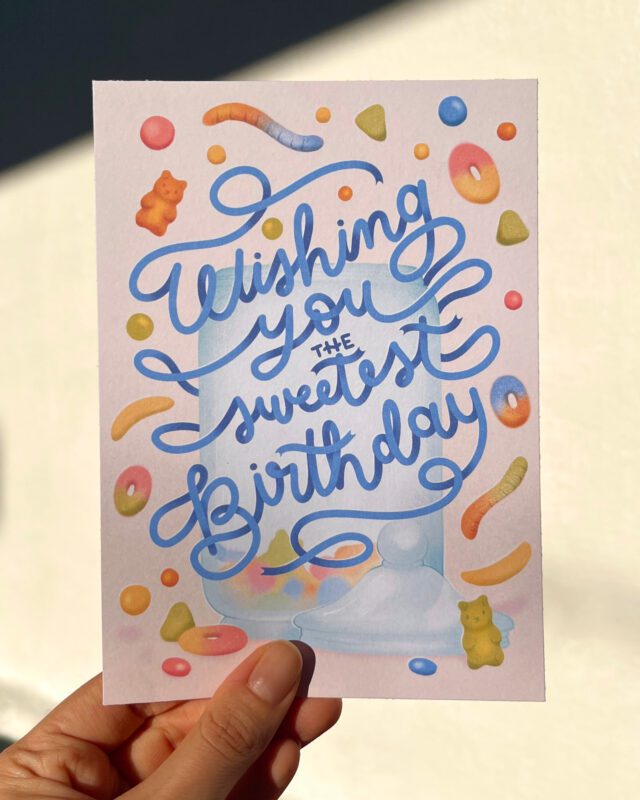 Wishing
you
THE
sweetest
Birthday